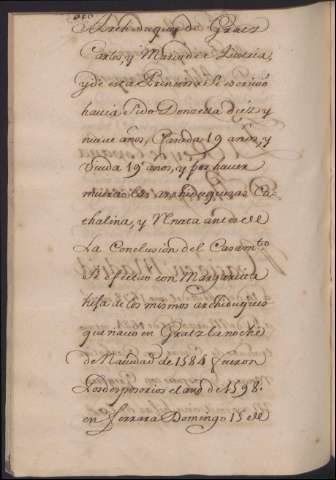 Archiduques de Gratz
Carlos, y Maria de Baviera,
y de esta Princesa se escrivió
havia sido Donzella diez y
nueve años, Casada 19 años, y
Viuda 19 años, y por haver
muerto las archiduquesas Ca-
thalina, y
La Conclusion del Casamto
se efectuo con Margarita
hija de los mismos archiduques
que nacio en Gratz la noche
de Navidad de 1584 fueron
Los desposorios el año de 1598.
en Ferrara Domingo 15 de